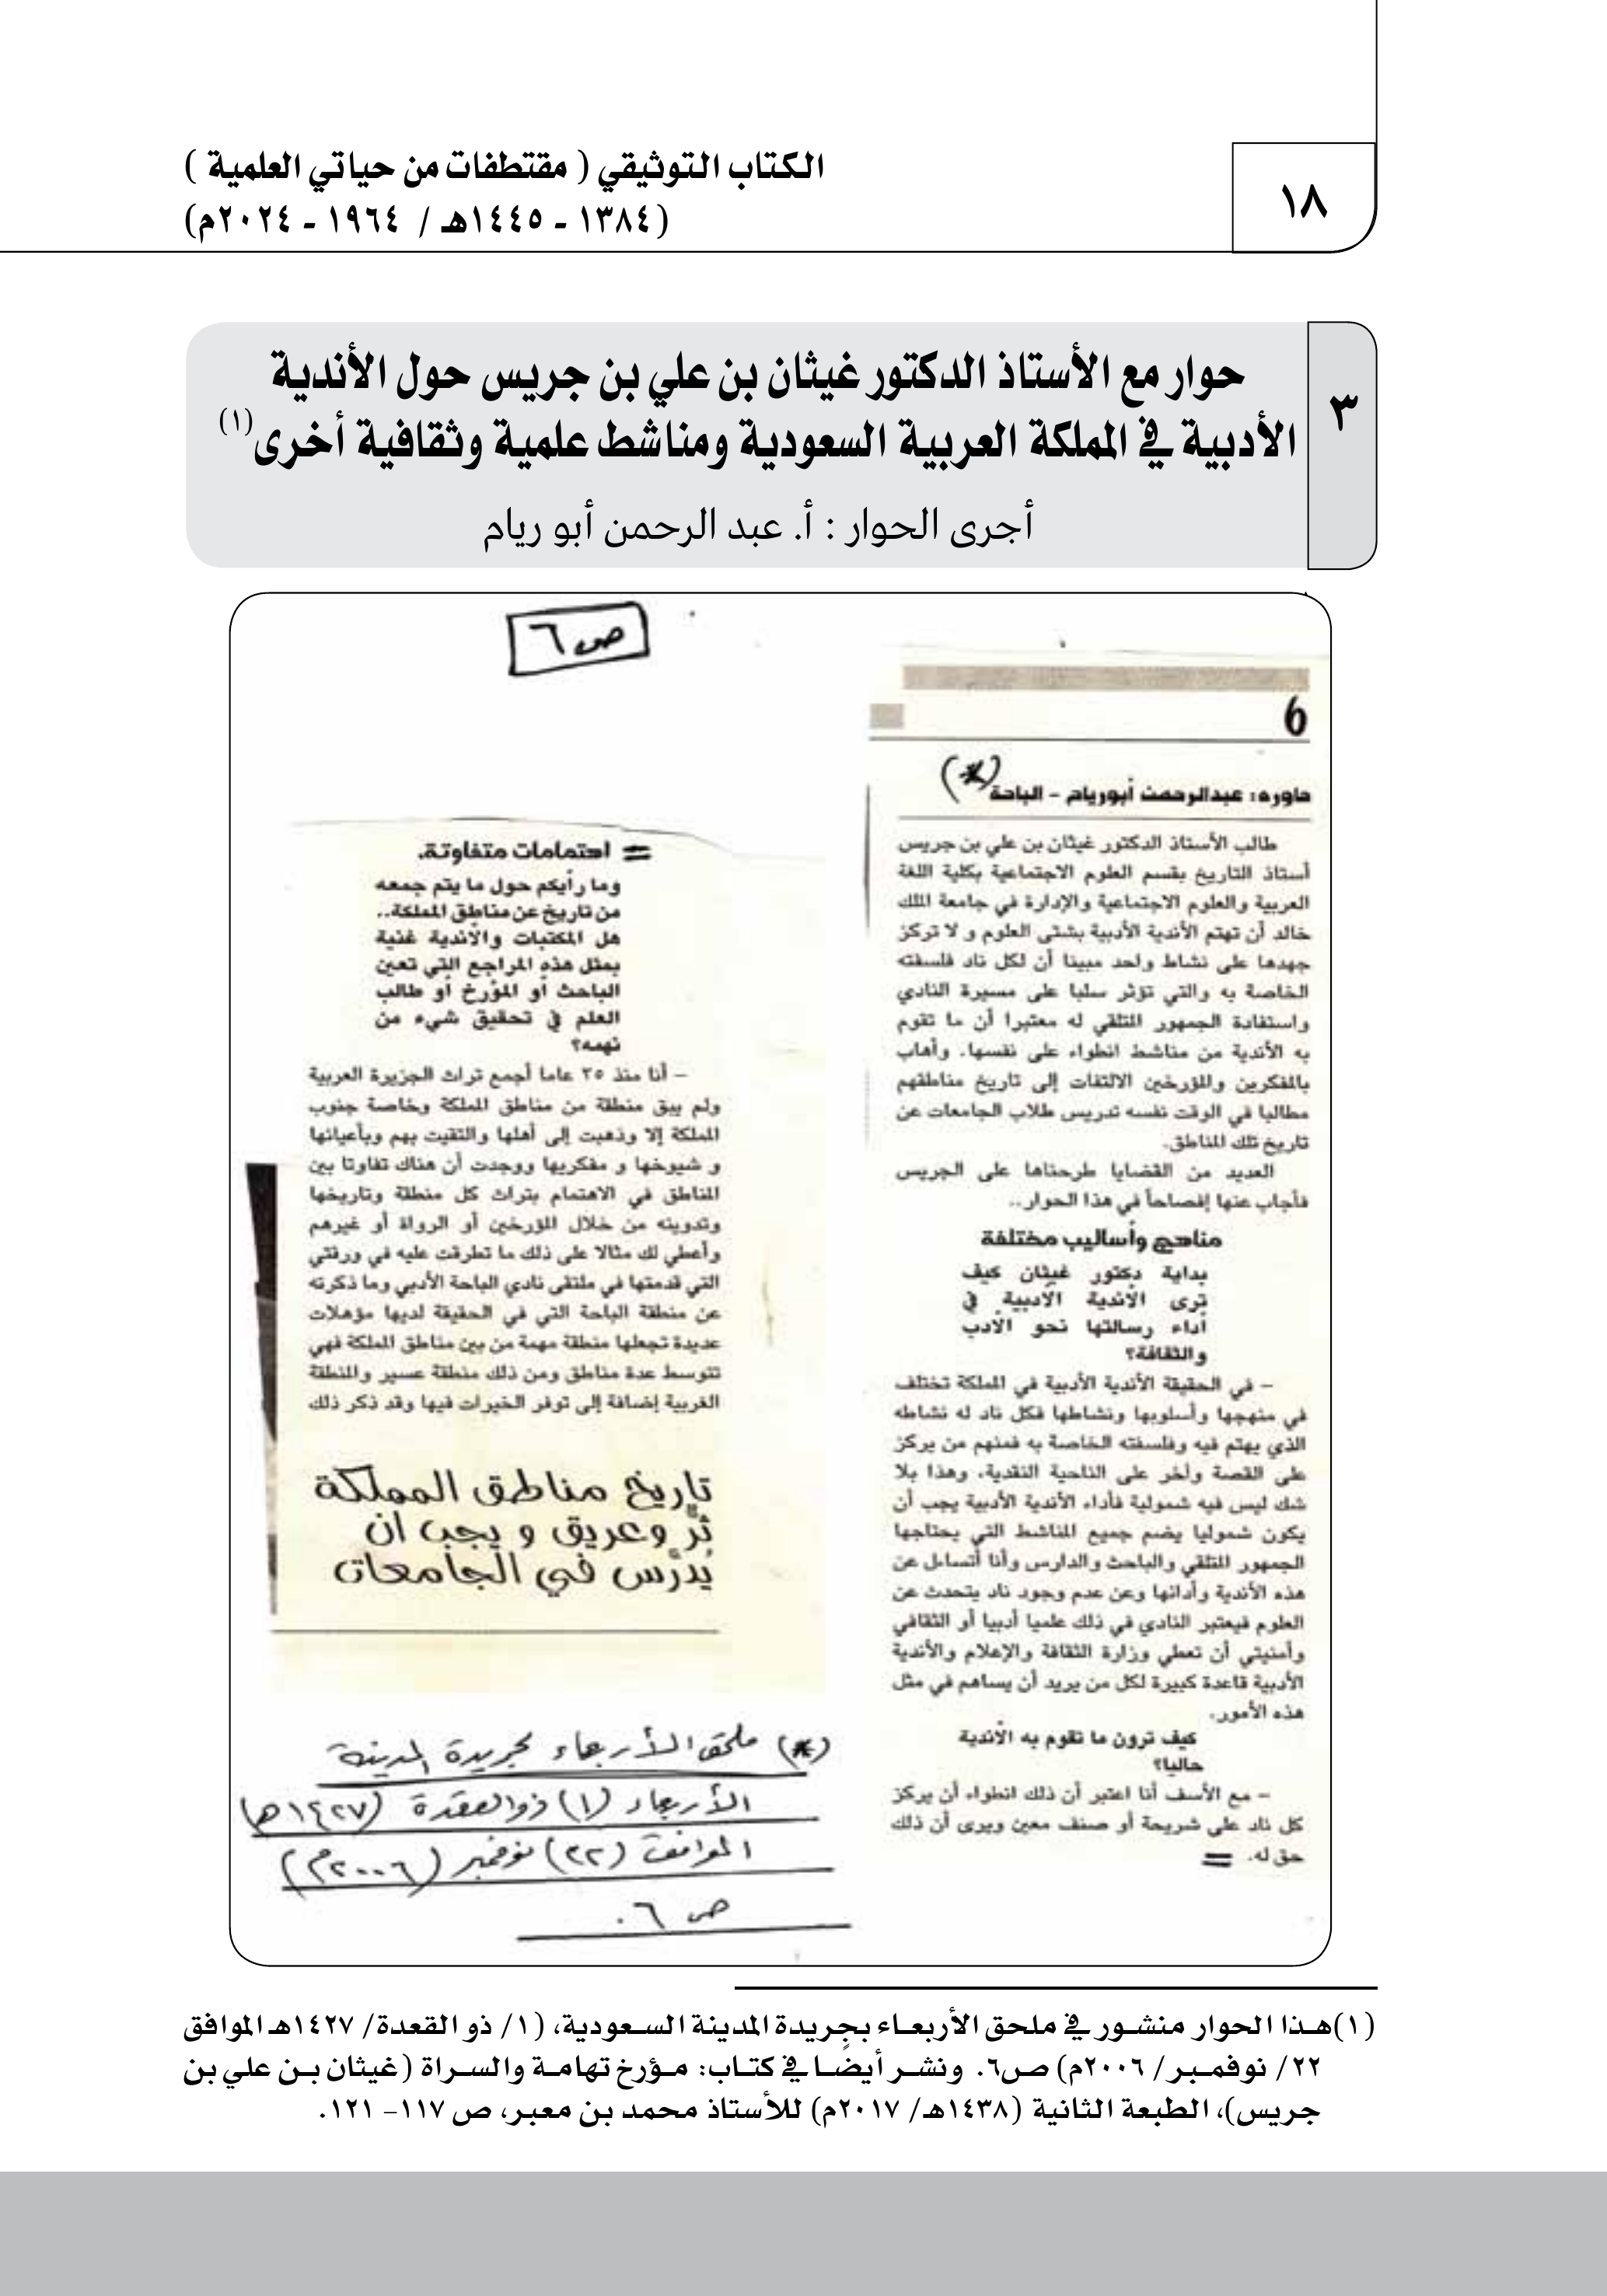 الكتاب التوثيقي ( مقتطفات من حياتي العلمية )
(١٣٨٤ - ١٤٤٥هـ / ١٩٦٤ - ٢٠٢٤م)
١٨
٣
حوار مع الأستاذ الدكتور غيثان بن علي بن جريس حول الأندية
الأدبية في المملكة العربية السعودية ومناشط علمية وثقافية أخرى(١)
أجرى الحوار : أ. عبد الرحمن أبو ريام
ص ٦
6
حاوره: عبدالرحمن أبورياح - الباحة (*)
طالب الأستاذ الدكتور غيثان بن علي بن جريس
أستاذ التاريخ بقسم العلوم الاجتماعية بكلية اللغة
العربية والعلوم الاجتماعية والإدارة في جامعة الملك
خالد أن تهتم الأندية الأدبية بشتى العلوم و لا تركز
جهدها على نشاط واحد مبينا أن لكل ناد فلسفته
الخاصة به والتي تؤثر سلبا على مسيرة النادي
واستفادة الجمهور المتلقي له معتبرا أن ما تقوم
به الأندية من مناشط انطواء على نفسها. وأهاب
بالمفكرين والمؤرخين الالتفات إلى تاريخ مناطقهم
مطالبا في الوقت نفسه تدريس طلاب الجامعات عن
تاريخ تلك المناطق.
العديد من القضايا طرحناها على الجريس
فأجاب عنها إفصاحاً في هذا الحوار..
مناهج وأساليب مختلفة
بداية دكتور غيثان كيف
ترى الأندية الأدبية في
أداء رسالتها نحو الأدب
والثقافة؟
- في الحقيقة الأندية الأدبية في المملكة تختلف
في منهجها وأسلوبها ونشاطها فكل ناد له نشاطه
الذي يهتم فيه وفلسفته الخاصة به فمنهم من يركز
على القصة وآخر على الناحية النقدية، وهذا بلا
شك ليس فيه شمولية فأداء الأندية الأدبية يجب أن
يكون شموليا يضم جميع المناشط التي يحتاجها
الجمهور المتلقي والباحث والدارس وأنا أتساءل عن
هذه الأندية وأدائها وعن عدم وجود ناد يتحدث عن
العلوم فيعتبر النادي في ذلك علميا أدبيا أو الثقافي
وأمنيتي أن تعطي وزارة الثقافة والإعلام والأندية
الأدبية قاعدة كبيرة لكل من يريد أن يساهم في مثل
هذه الأمور.
كيف ترون ما تقوم به الأندية
حاليا؟
- مع الأسف أنا اعتبر أن ذلك انطواء أن يركز
كل ناد على شريحة أو صنف معين ويرى أن ذلك
حق له. =
= اهتمامات متفاوتة.
وما رأيكم حول ما يتم جمعه
من تاريخ عن مناطق المملكة..
هل المكتبات والأندية غنية
بمثل هذه المراجع التي تعين
الباحث أو المؤرخ أو طالب
العلم في تحقيق شيء من
نهمه؟
- أنا منذ ٢٥ عاما أجمع تراث الجزيرة العربية
ولم يبق منطقة من مناطق المملكة وخاصة جنوب
المملكة إلا وذهبت إلى أهلها والتقيت بهم وبأعيانها
و شيوخها و مفكريها ووجدت أن هناك تفاوتا بين
المناطق في الاهتمام بتراث كل منطقة وتاريخها
وتدوينه من خلال المؤرخين أو الرواة أو غيرهم
وأعطي لك مثالا على ذلك ما تطرقت عليه في ورقتي
التي قدمتها في ملتقى نادي الباحة الأدبي وما ذكرته
عن منطقة الباحة التي في الحقيقة لديها مؤهلات
عديدة تجعلها منطقة مهمة من بين مناطق المملكة فهي
تتوسط عدة مناطق ومن ذلك منطقة عسير والمنطقة
الغربية إضافة إلى توفر الخيرات فيها وقد ذكر ذلك
تاريخ مناطق المملكة
ثرّ وعريق و يجب ان
يدرّس في الجامعات
(*) ملحق الأربعاء بجريدة المدينة
الأربعاء (١) ذوالقعدة (١٤٢٧هـ)
الموافق (٢٢) نوفمبر (٢٠٠٦م)
ص ٦.
(١) هـذا الحوار منشـور في ملحق الأربعـاء بجريدة المدينة السـعودية، (١/ ذو القعدة/ ١٤٢٧هـ الموافق
٢٢/ نوفمـبر/ ٢٠٠٦م) ص٦. ونشـر أيضًـا في كتـاب: مـؤرخ تهامـة والسـراة (غيثان بـن علي بن
جريس)، الطبعة الثانية (١٤٣٨هـ/ ٢٠١٧م) للأستاذ محمد بن معبر، ص ١١٧– ١٢١.